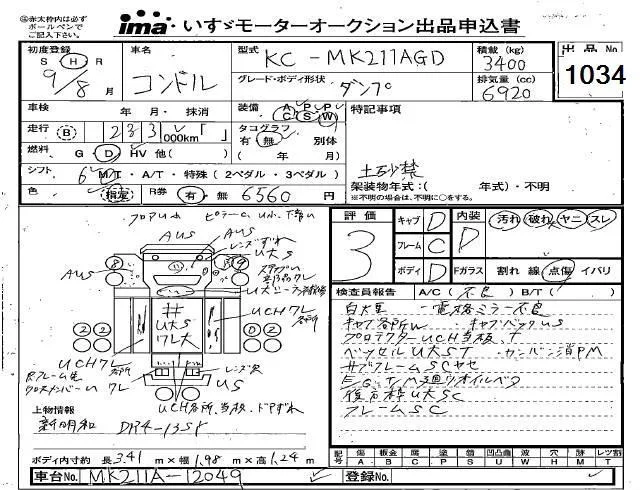 ㊟赤太枠内は必ず
ボールペンで
ご記入下さい。
ima・いすゞモーターオークション出品申込書
初度登録
S H R
9/8月
車名
コンドル
型式
KC-MK211AGD
グレード・ボディ形状
ダンプ
積載 (kg)
3400
排気量 (cc)
6920
出品No.
1034
車検 年 月・ 抹消
装備 A P P
C S W
特記事項
走行 B 233 000km「 」
タコグラフ
有 無 別体
( 年 月)
燃料 G・D・HV 他( )
シフト 6 M/T・A/T・特殊(2ペダル・3ペダル)
土砂禁
架装物年式:( 年式)・不明
※不明の場合は、不明に○をする。
色 指定 R券 有・無 6560円
評価
3
キャブ D
フレーム C
ボディ D
内装 D
汚れ 破れ ヤニ スレ
Fガラス 割れ 線 点傷 イバリ
検査員報告 A/C( 不良 ) B/T( )
電格ミラー不良
キャブ各所W キャブバックUS
プロテクターUCH当板、T
ベッセルU大ST
サブフレームSCヤセ
E/G・T/M廻りオイルベタ
U大SC
フレームSC
AUS
AUS
AUS
レンズずれ
U大S
8
9
井
U大S
ワレ大
UCHワレ
各所
2 2
2 2
UCHワレ
各所
Rフレーム先
クロスメンバーU ワレ
レンズ欠
US
UCH各所、当板、ドアずれ
上物情報
新明和 DR4-13SF
ボディ内寸約 長3.41m×幅1.98m×高1.24m
記号 傷A 板金B 腐C 塗P サビS 凹凸曲U 波W 穴H 減M レツ割T
車台No. MK211A-12049
登録No.